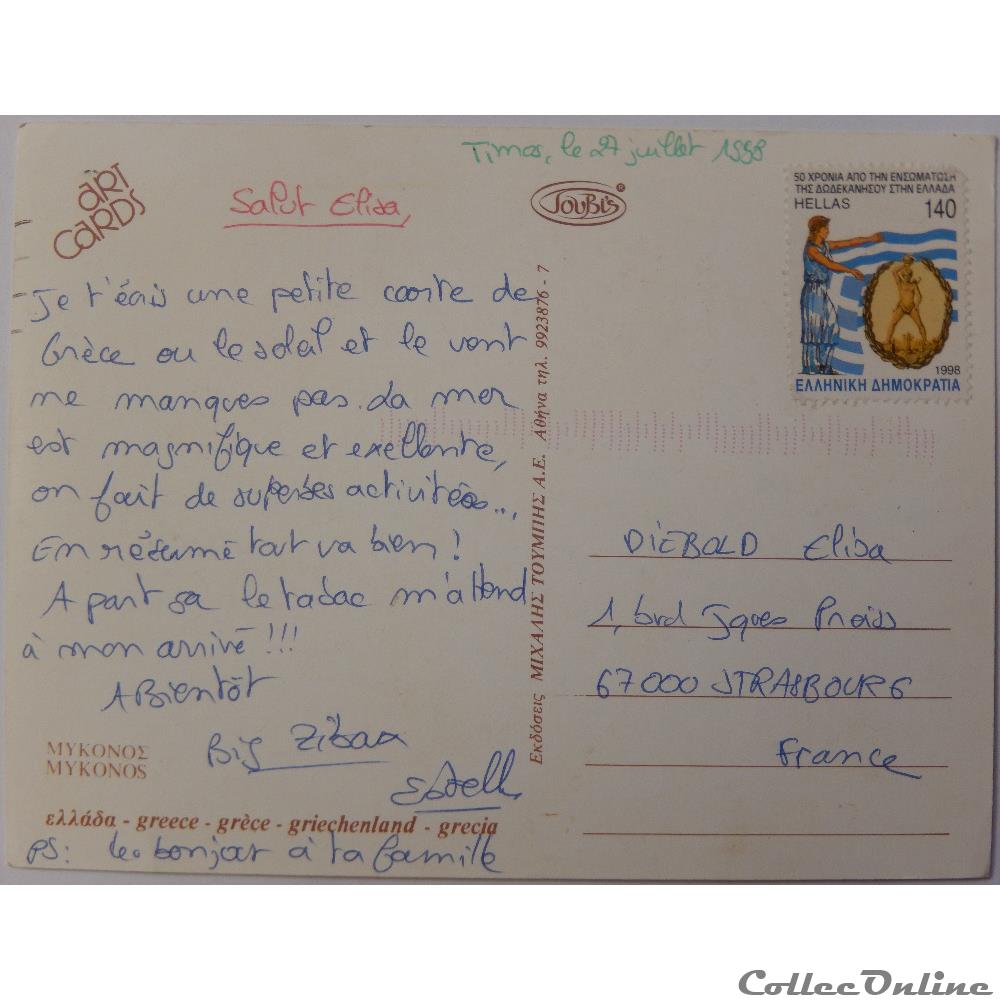 Timos, le 27 juillet 1998
art
CARDS
Salut Elisa,
TOUBI'S
50 ΧΡΟΝΙΑ ΑΠΟ ΤΗΝ ΕΝΣΩΜΑΤΩΣΗ
ΤΗΣ ΔΩΔΕΚΑΝΗΣΟΥ ΣΤΗΝ ΕΛΛΑΔΑ
HELLAS 140
1998
ΕΛΛΗΝΙΚΗ ΔΗΜΟΚΡΑΤΙΑ
Je t'écris une petite carte de
Grèce ou le soleil et le vent
me manques pas. La mer
est magnifique et exellente,
on fait de superbes activitées...
En résumé tout va bien !
A part sa le tabac m'attend
à mon arrivé !!!
A Bientôt
Big Zibax
Estelle
ΜΥΚΟΝΟΣ
MYKONOS
ελλάδα - greece - grèce - griechenland - grecia
PS: le bonjour à ta famille
Εκδόσεις ΜΙΧΑΛΗΣ ΤΟΥΜΠΗΣ Α.Ε. Αθήνα τηλ. 9923876 - 7
DIEBOLD Elisa
1, bvd Jques Preiss
67000 STRASBOURG
France
CollecOnline